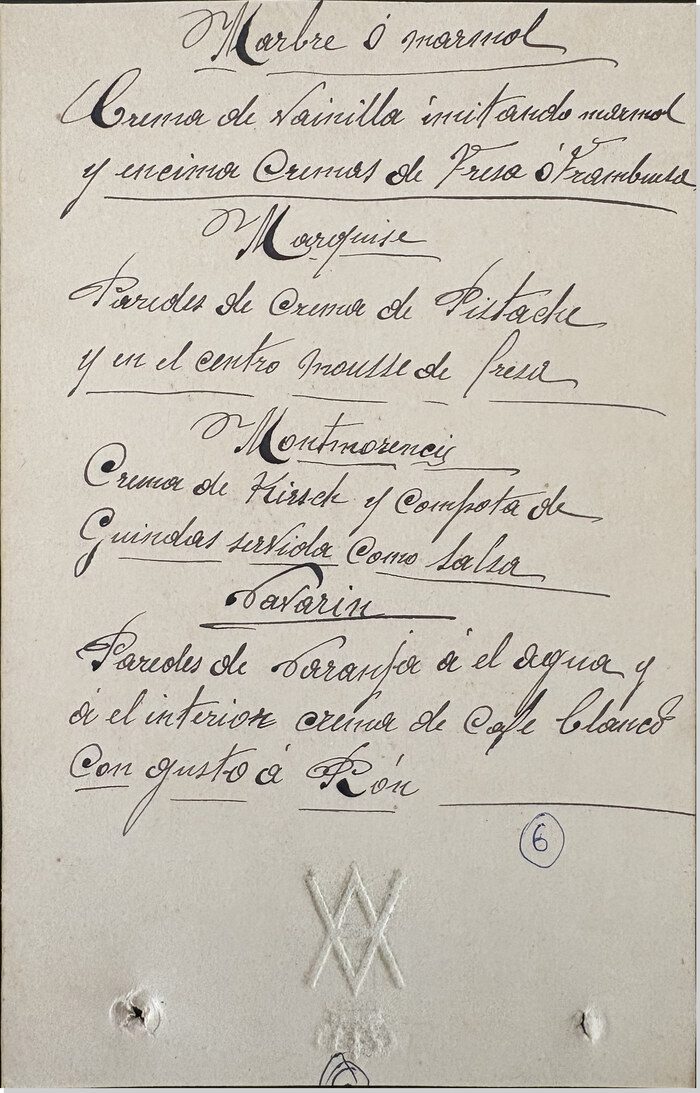 Marbre ó marmol
Crema de Vainilla imitando marmol
y encima Cremas de Fresa ó Frambuesa
Marquise
Paredes de Crema de Pistache
y en el centro mousse de fresa
Montmorency
Crema de Kirsch y Compota de
Guindas servida Como Salsa
Navarin
Paredes de Naranja á el agua y
á el interior crema de Cafe blanco
Con gusto á Rón
6